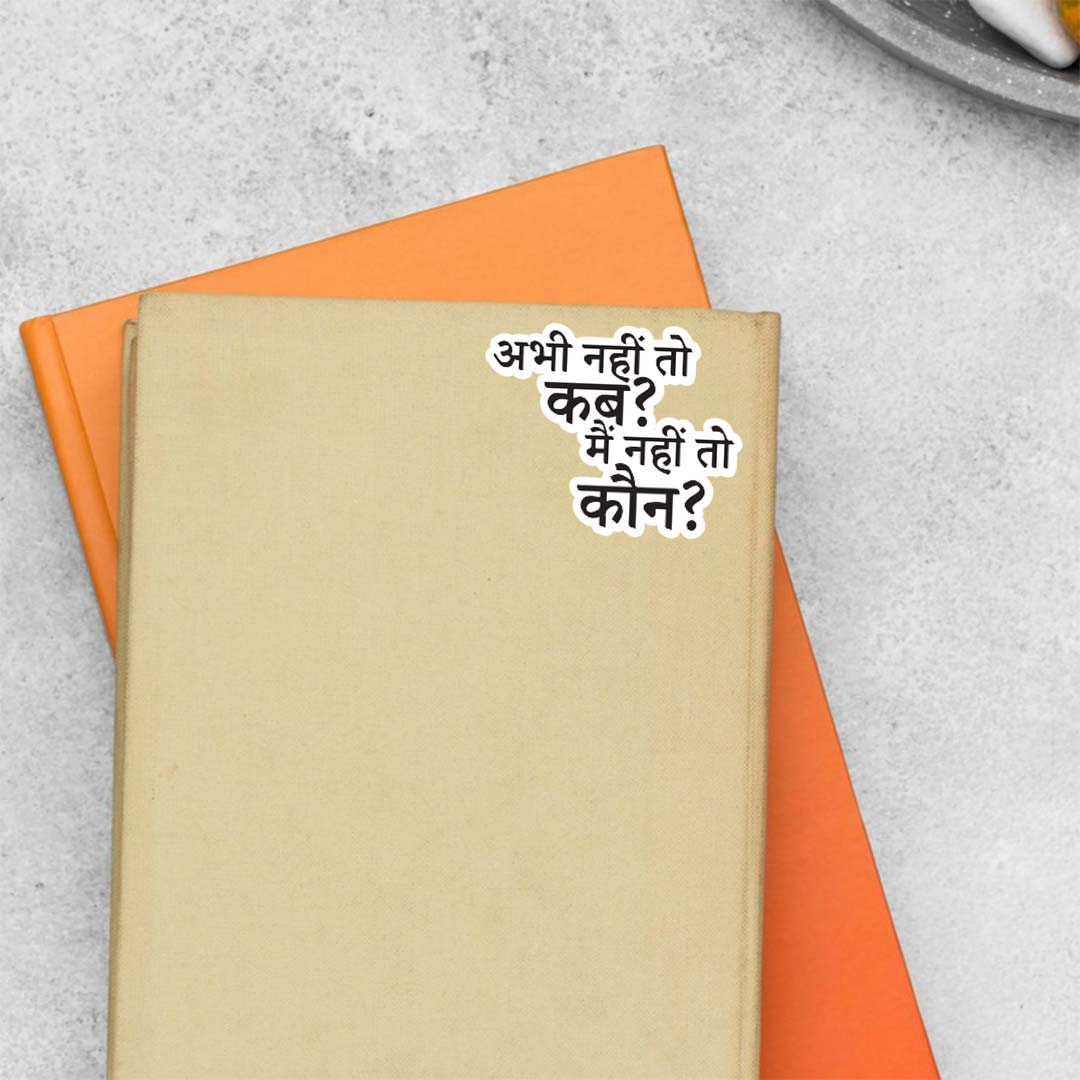 अभी नहीं तो
कब?
मैं नहीं तो
कौन?